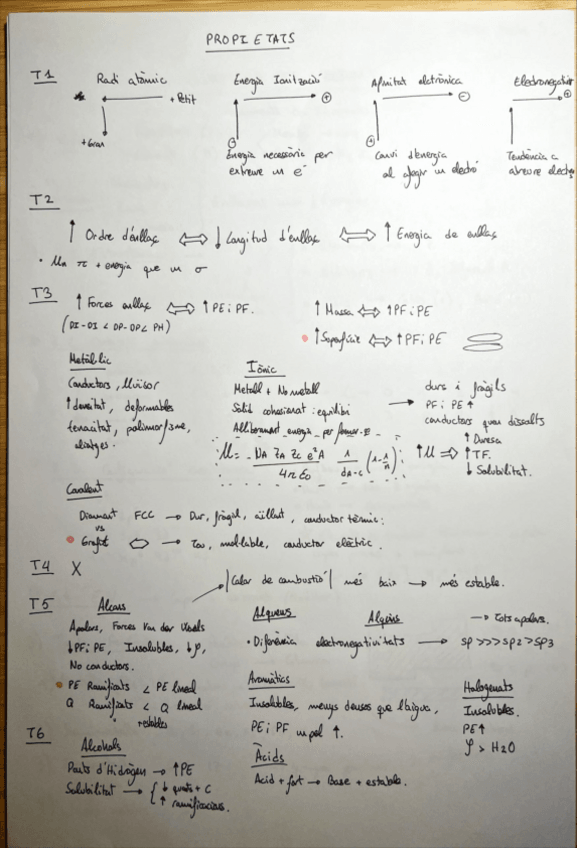 PROPIETATS
T1
Radi atòmic
+ Petit
+ Gran
Energia Ionització
+
-
Energia necessària per
extreure un e⁻
Afinitat elctrònica
-
+
Canvi d'energia
al afegir un electró
Electronegativi
+
Tendència a
atreure electr
T2
↑ Ordre d'enllaç ⟺ ↓ Longitud d'enllaç ⟺ ↑ Energia de enllaç
• Un π + energia que un σ
T3
↑ Forces enllaç ⟺ ↑ PE i PF.
(DI-DI < DP-DP < PH)
↑ Massa ⟺ ↑ PF i PE
↑ Superfície ⟺ ↑ PF i PE
Metàl·lic
Conductors, lluïsor
↑ densitat, deformables
tenacitat, polimorfisme,
aliatges.
Iònic
Metall + No metall
Sòlid cohesionat: equilibi
Alliberament energia per formar-E
U = - NA ZA ZC e² A / 4π ε0 · 1 / dA-C (1 - 1/n)
→ durs i fràgils
PF i PE ↑
conductors quan dissolts
↑ U ⟹ ↑ Duresa
↑ TF.
↓ Solubilitat.
Covalent
Diamant FCC → Dur, fràgil, aïllant, conductor tèrmic.
vs
Grafit → Tou, mal·leable, conductor elèctric.
T4 X
|Calor de combustió| més baix → més estable.
T5
Alcans
Apolars, Forces Van der Waals
↓ PF i PE, Insolubles, ↓ρ,
No conductors.
PE Ramificats < PE lineal
Q Ramificats < Q lineal
+ estables
Alquens
Alquins
→ Tots apolars.
• Diferència electronegativitats → sp >>> sp2 > sp3
Aromàtics
Insolubles, menys denses que l'aigua,
PE i PF un pel ↑.
Halogenats
Insolubles.
PE ↑
ρ > H2O
T6
Alcohols
Ponts d'Hidrògen → ↑ PE
Solubilitat → { ↓ quants + C
↑ ramificacions.
Àcids
Acid + fort → Base + estable.